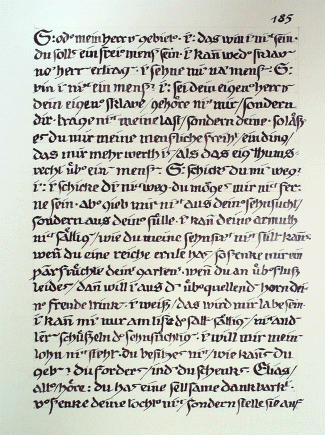 185
S: oder mein herr und gebieter. I: das will ich nicht sein.
du sollst ein freier mensch sein. ich kann weder sklave
noch herr ertragen. ich sehne mich nach menschen. S:
bin ich nicht ein mensch? I: sei dein eigener herr und
dein eigener sklave, gehöre nicht mir / sondern
dir. trage nicht meine last / sondern deine. so lässest
du mir meine menschliche freiheit / ein ding /
das mir mehr werth ist / als das eigenthums-
recht über einen menschen. S: schickst du mich weg?
I: ich schicke dich nicht weg. du mögest mir nicht fer-
ne sein. aber gieb mir nicht aus deiner sehnsucht /
sondern aus deiner fülle. ich kann deine armuth
nicht sättigen / wie du meine sehnsucht nicht stillen kannst.
wenn du eine reiche ernte hast / so schenke mir ein
paar früchte deines gartens. wenn du an überfluss
leidest / dann will ich aus dem überquellenden horn dei-
ner freude trinken. ich weiß / das wird mir labe sein.
ich kann mich nur am tische der satten sättigen / nicht an der
leeren schüßeln der sehnsüchtigen. ich will mir meinen
lohn nicht stehlen. du besitzest nichts / wie kannst du
geben? du forderst / indem du schenkst. Elias /
alter / höre: du hast eine seltsame dankbarkeit.
verschenke deine tochter nicht / sondern stelle sie auf